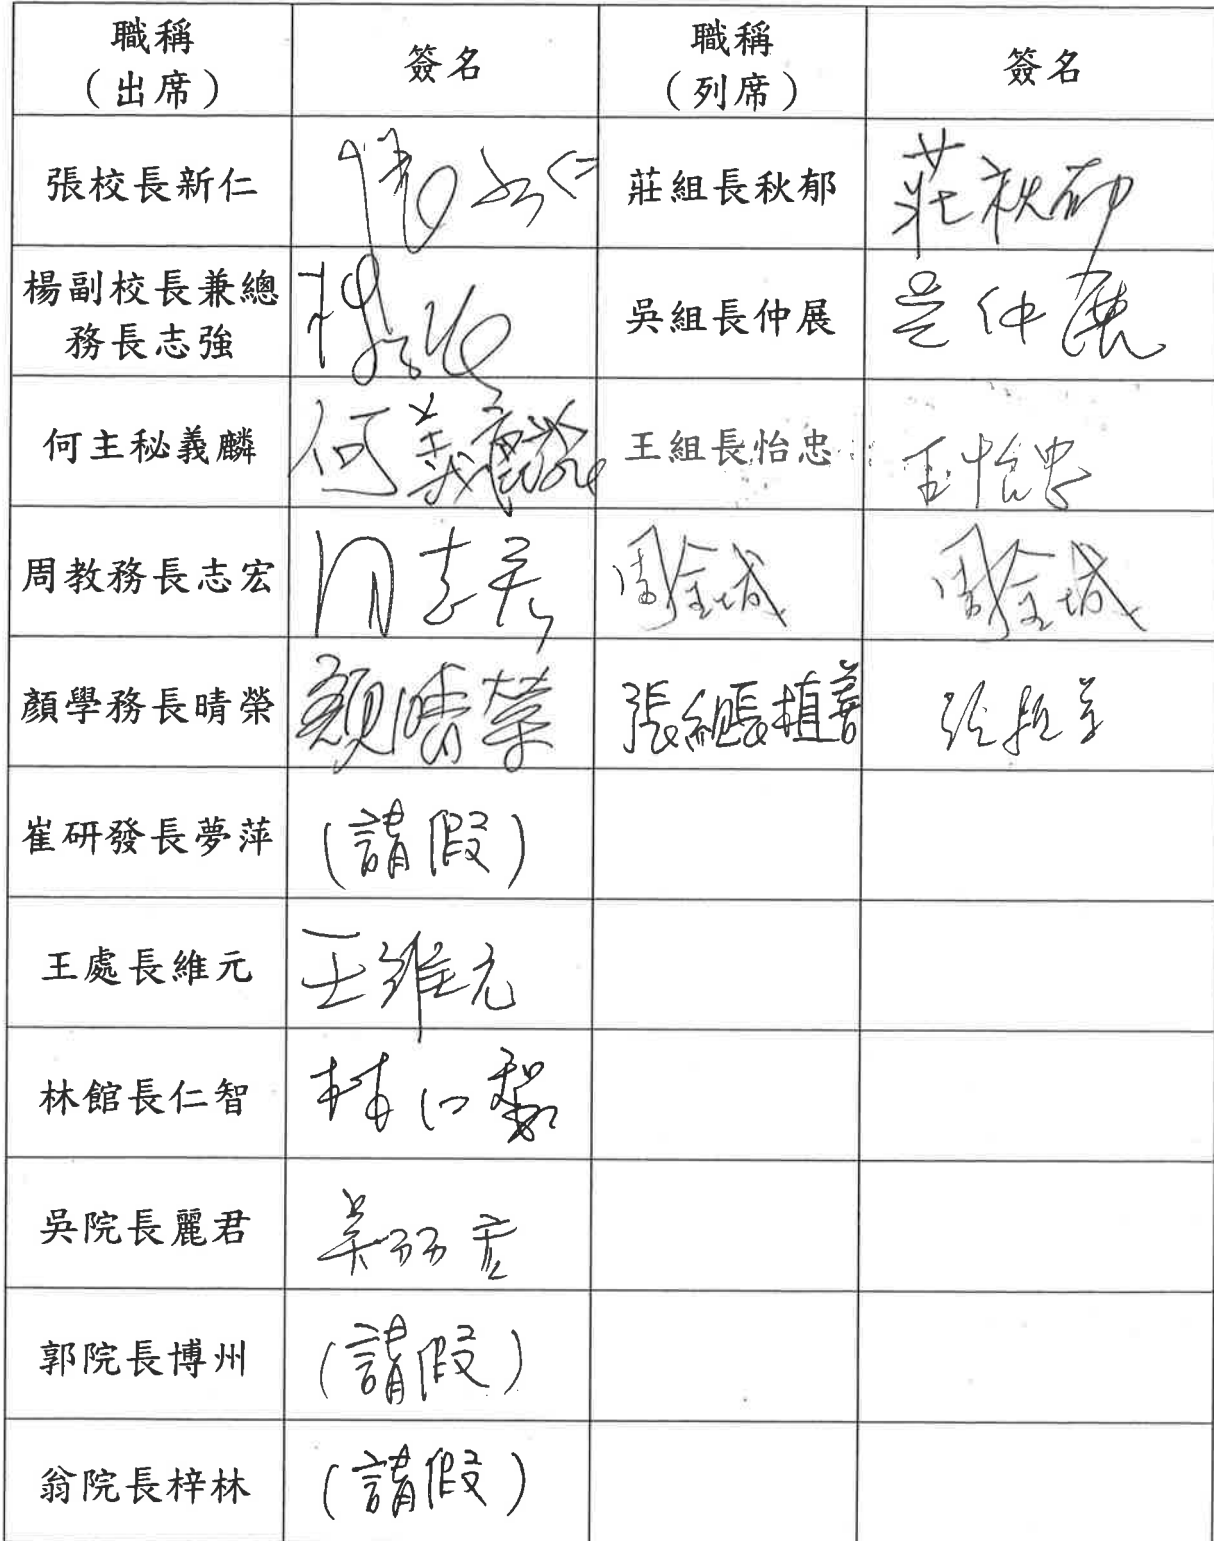 職稱
（出席）
簽名
職稱
（列席）
簽名
張校長新仁
莊組長秋郁
莊秋郁
楊副校長兼總
務長志強
吳組長仲展
吳仲展
何主秘義麟
何義麟
王組長怡忠
王怡忠
周教務長志宏
周志宏
周金城
周金城
顏學務長晴榮
顏晴榮
張組長植善
崔研發長夢萍
(請假)
王處長維元
王維元
林館長仁智
林仁智
吳院長麗君
郭院長博州
(請假)
翁院長梓林
(請假)